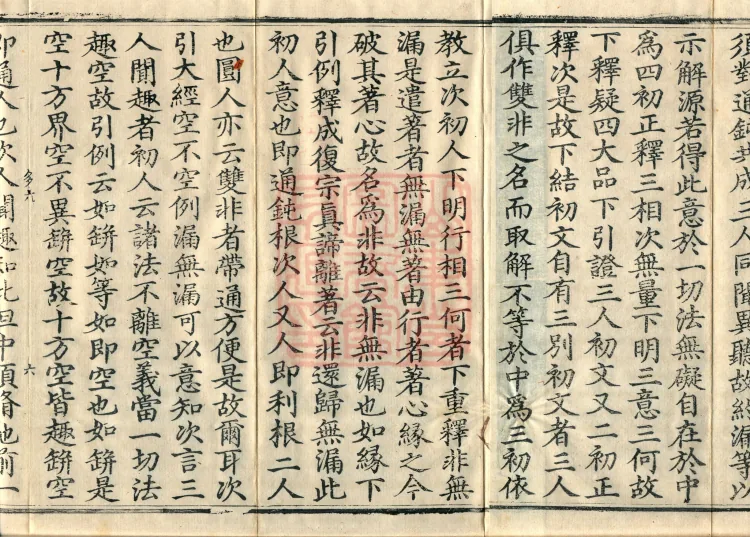 須對通鈍共成二人同聞異聽故緣漏等以
示解源若得此意於一切法無礙自在於中
為四初正釋三相次無量下明三意三何故
下釋疑四大品下引證三人初文又二初正
釋次是故下結初文自有三別初文者三人
俱作雙非之名而取解不等於中為三初依
教立次初人下明行相三何者下重釋非無
漏是遣著者無漏無著由行者著心緣之今
破其著心故名為非故云非無漏也如緣下
引例釋成復宗真諦離著云非還歸無漏此
初人意也即通鈍根次人又人即利根二人
也圓人亦云雙非者帶通方便是故爾耳次
引大經空不空例漏無漏可以意知次言三
人聞趣者初人云諸法不離空義當一切法
趣空故引例云如缾如等如即空也如缾是
空十方界空不異缾空故十方空皆趣缾空
六
即通人也次人聞趣知此但中須脩地前一